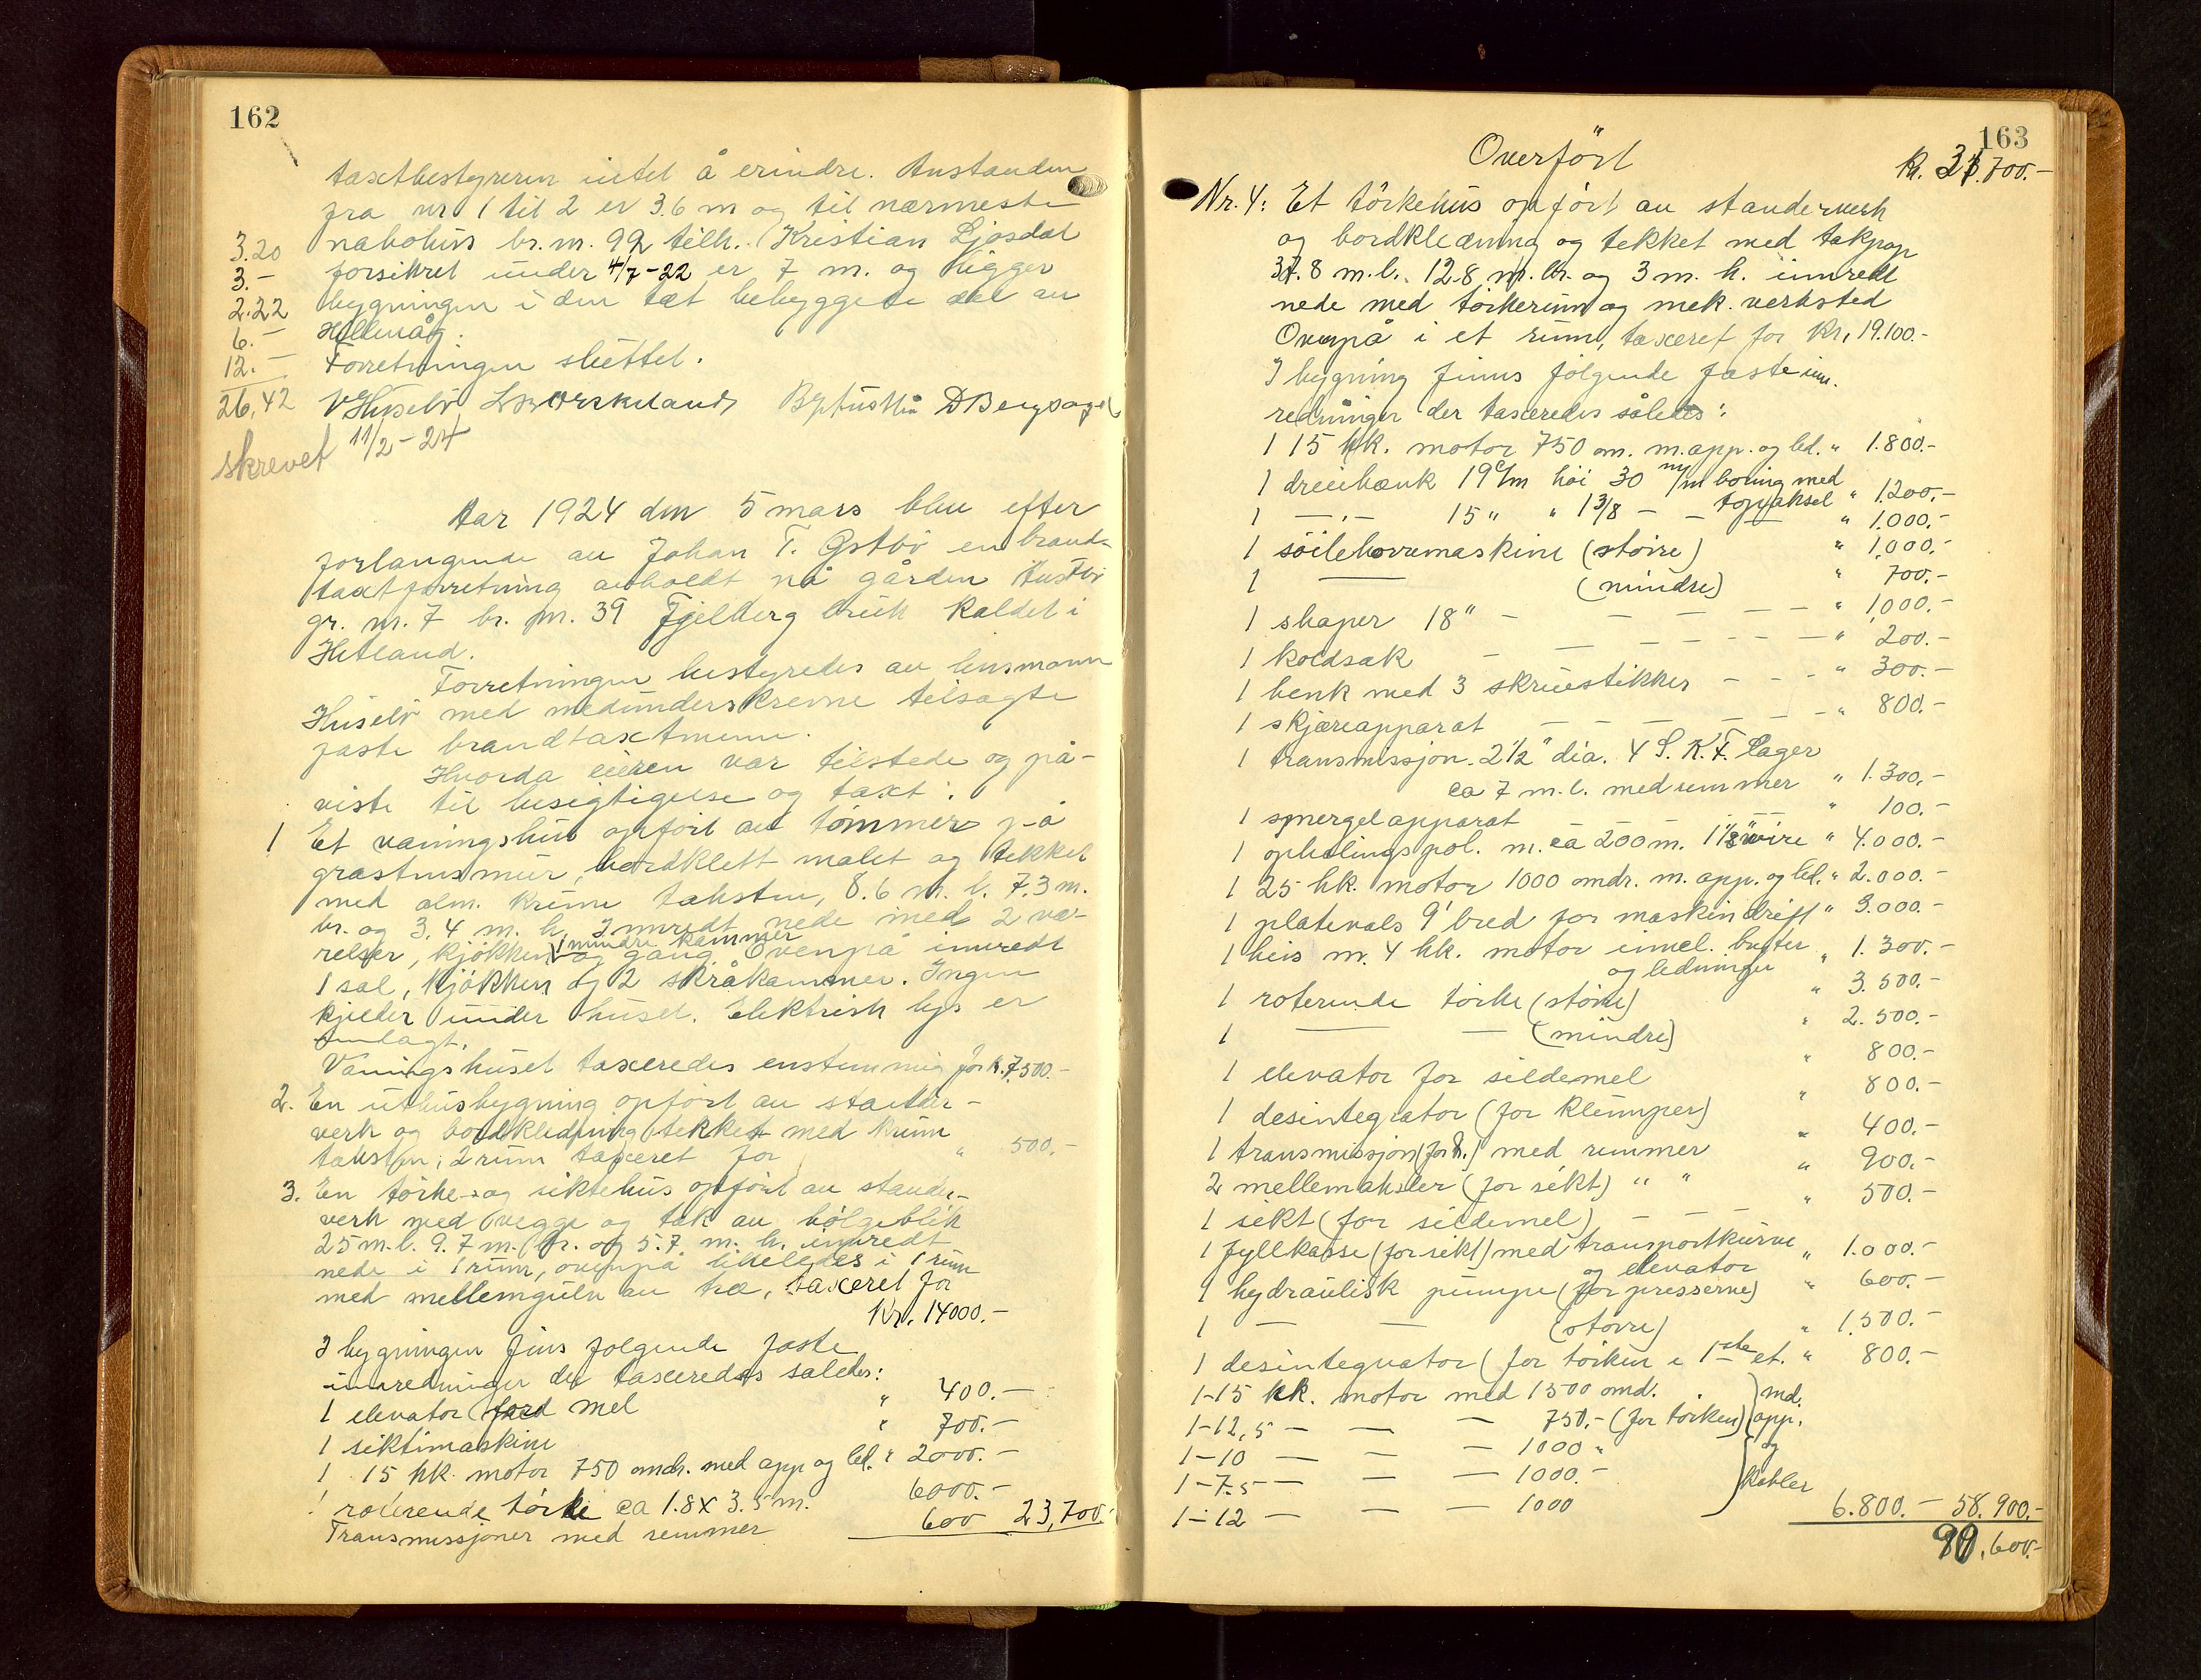 162
taxtbestyreren intet å erindre. Avstanden
fra nr 1 til 2 er 3.6 m og til nærmeste
nabohus br. nr. 92 tilh. Kristian Ljosdal
forsikret under 4/7-22 er 7 m. og ligger
bygningen i den tæt bebyggede del av
Hillevåg.
Forretningen sluttet.
3.20
3.-
2.22
6.-
12.-
26,42
VHuselö
skrevet 11/2-24
Aar 1924 den 5 mars blev efter
forlangende av Johan T. Østbö en brand-
taxtforretning avholdt på gården Austbö
gr. nr. 7 br. nr. 39 Fjelberg bruk kaldet i
Hetland.
Forretningen bestyredes av lensmann
Huselö med medunderskrevne tilsagte
faste brandtaxtmenn.
Hvorda eieren var tilstede og på-
viste til besigtigelse og taxt:
1 Et våningshus opfört av tömmer på
gråstensmur, bordklett malet og tekket
med alm. krum taksten, 8.6 m. l. 7.3 m.
br. og 3,4 m. h. Innredt nede med 2 væ-
relser, kjökken 1 mindre kammer og gang Ovenpå innredt
1 sal, kjökken og 2 skråkammer. Ingen
kjelder under huset. Elektrisk lys er
innlagt.
Våningshuset taxeredes enstemmig for k. 7.500.-
2. En uthusbygning opfört av stander-
verk og bordkledning tekket med krum
taksten; 2 rum taxeret for " 500.-
3. En törke- og siktehus opfört av stander-
verk med vegge og tak av bölgeblik
25 m. l. 9.7 m. br. og 5.7 m. h. innredt
nede i 1 rum, ovenpå likeledes i 1 rum
med mellemgulv av træ, taxeret for
Kr. 14000.-
I bygningen fins følgende faste
innredninger der taxeredes således:
1 elevator for mel " 400.-
1 siktimaskine " 700.-
1 15 hk. motor 750 omdr. med app og led. " 2000.-
1 roterende törke ca 1.8 x 3.5 m. 6000.-
Transmissjoner med remmer 600 23,700.-
163
Overfört k. 31.700.-
Nr. 4: Et törkehus opfört av standerverk
og bordkledning og tekket med takpap
37.8 m. l. 12.8 m. br. og 3 m. h. innredt
nede med törkerum og mek. verksted
Ovenpå i et rum, taxeret for Kr. 19.100.-
I bygning finns følgende faste inn-
redninger der taxeredes således:
1 15 hk. motor 750 om. m. app. og led. " 1.800.-
1 dreiebænk 19 c/m höi 30 m/m boring med
topaksel " 1.200.-
1 -,- 15 " " 1 3/8 - - - " 1.000.-
1 söileboremaskine (större) " 1.000.-
1 — (mindre) " 700.-
1 shaper 18" - - - - - " 1.000.-
1 koldsak - - - - - " 200.-
1 benk med 3 skruestikker - - - " 300.-
1 skjæreapparat - - - - - " 800.-
1 transmissjon 2 1/2" dia. 4 S.K.F. lager
ca 7 m. l. med remmer " 1.300.-
1 smergelapparat - - " 100.-
1 ophalingspol. m. ca 200 m. 1 1/8" wire " 4.000.-
1 25 hk. motor 1000 omdr. m. app. og led. " 2.000.-
1 platevals 9' bred for maskindrift " 9.000.-
1 heis m. 4 hk. motor
og ledninger " 1.300.-
1 roterende törke (större) " 3.500.-
1 — - (mindre) " 2.500.-
1 elevator for sildemel " 800.-
1 desintegrator (for klumper) " 800.-
1 transmissjon med remmer " 400.-
2 mellemaksler (for sikt) " " " 900.-
1 sikt (for sildemel) - - " 500.-
1 fyllkasse (for sikt) med transportskrue
og elevator " 1.000.-
1 hydraulisk pumpe (for presserne) " 600.-
1 - - (större) " 1.500.-
1 desintegrator (for törken i 1ste et. " 800.-
1-15 hk. motor med 1500 omd.
1-12,5 - - - 750.- (for törken)
1-10 - - - 1000 "
1-7.5 - - - 1000.-
1-12 - - - 1000
md.
app.
og
kabler
6.800.- 58.900.-
90.600.-